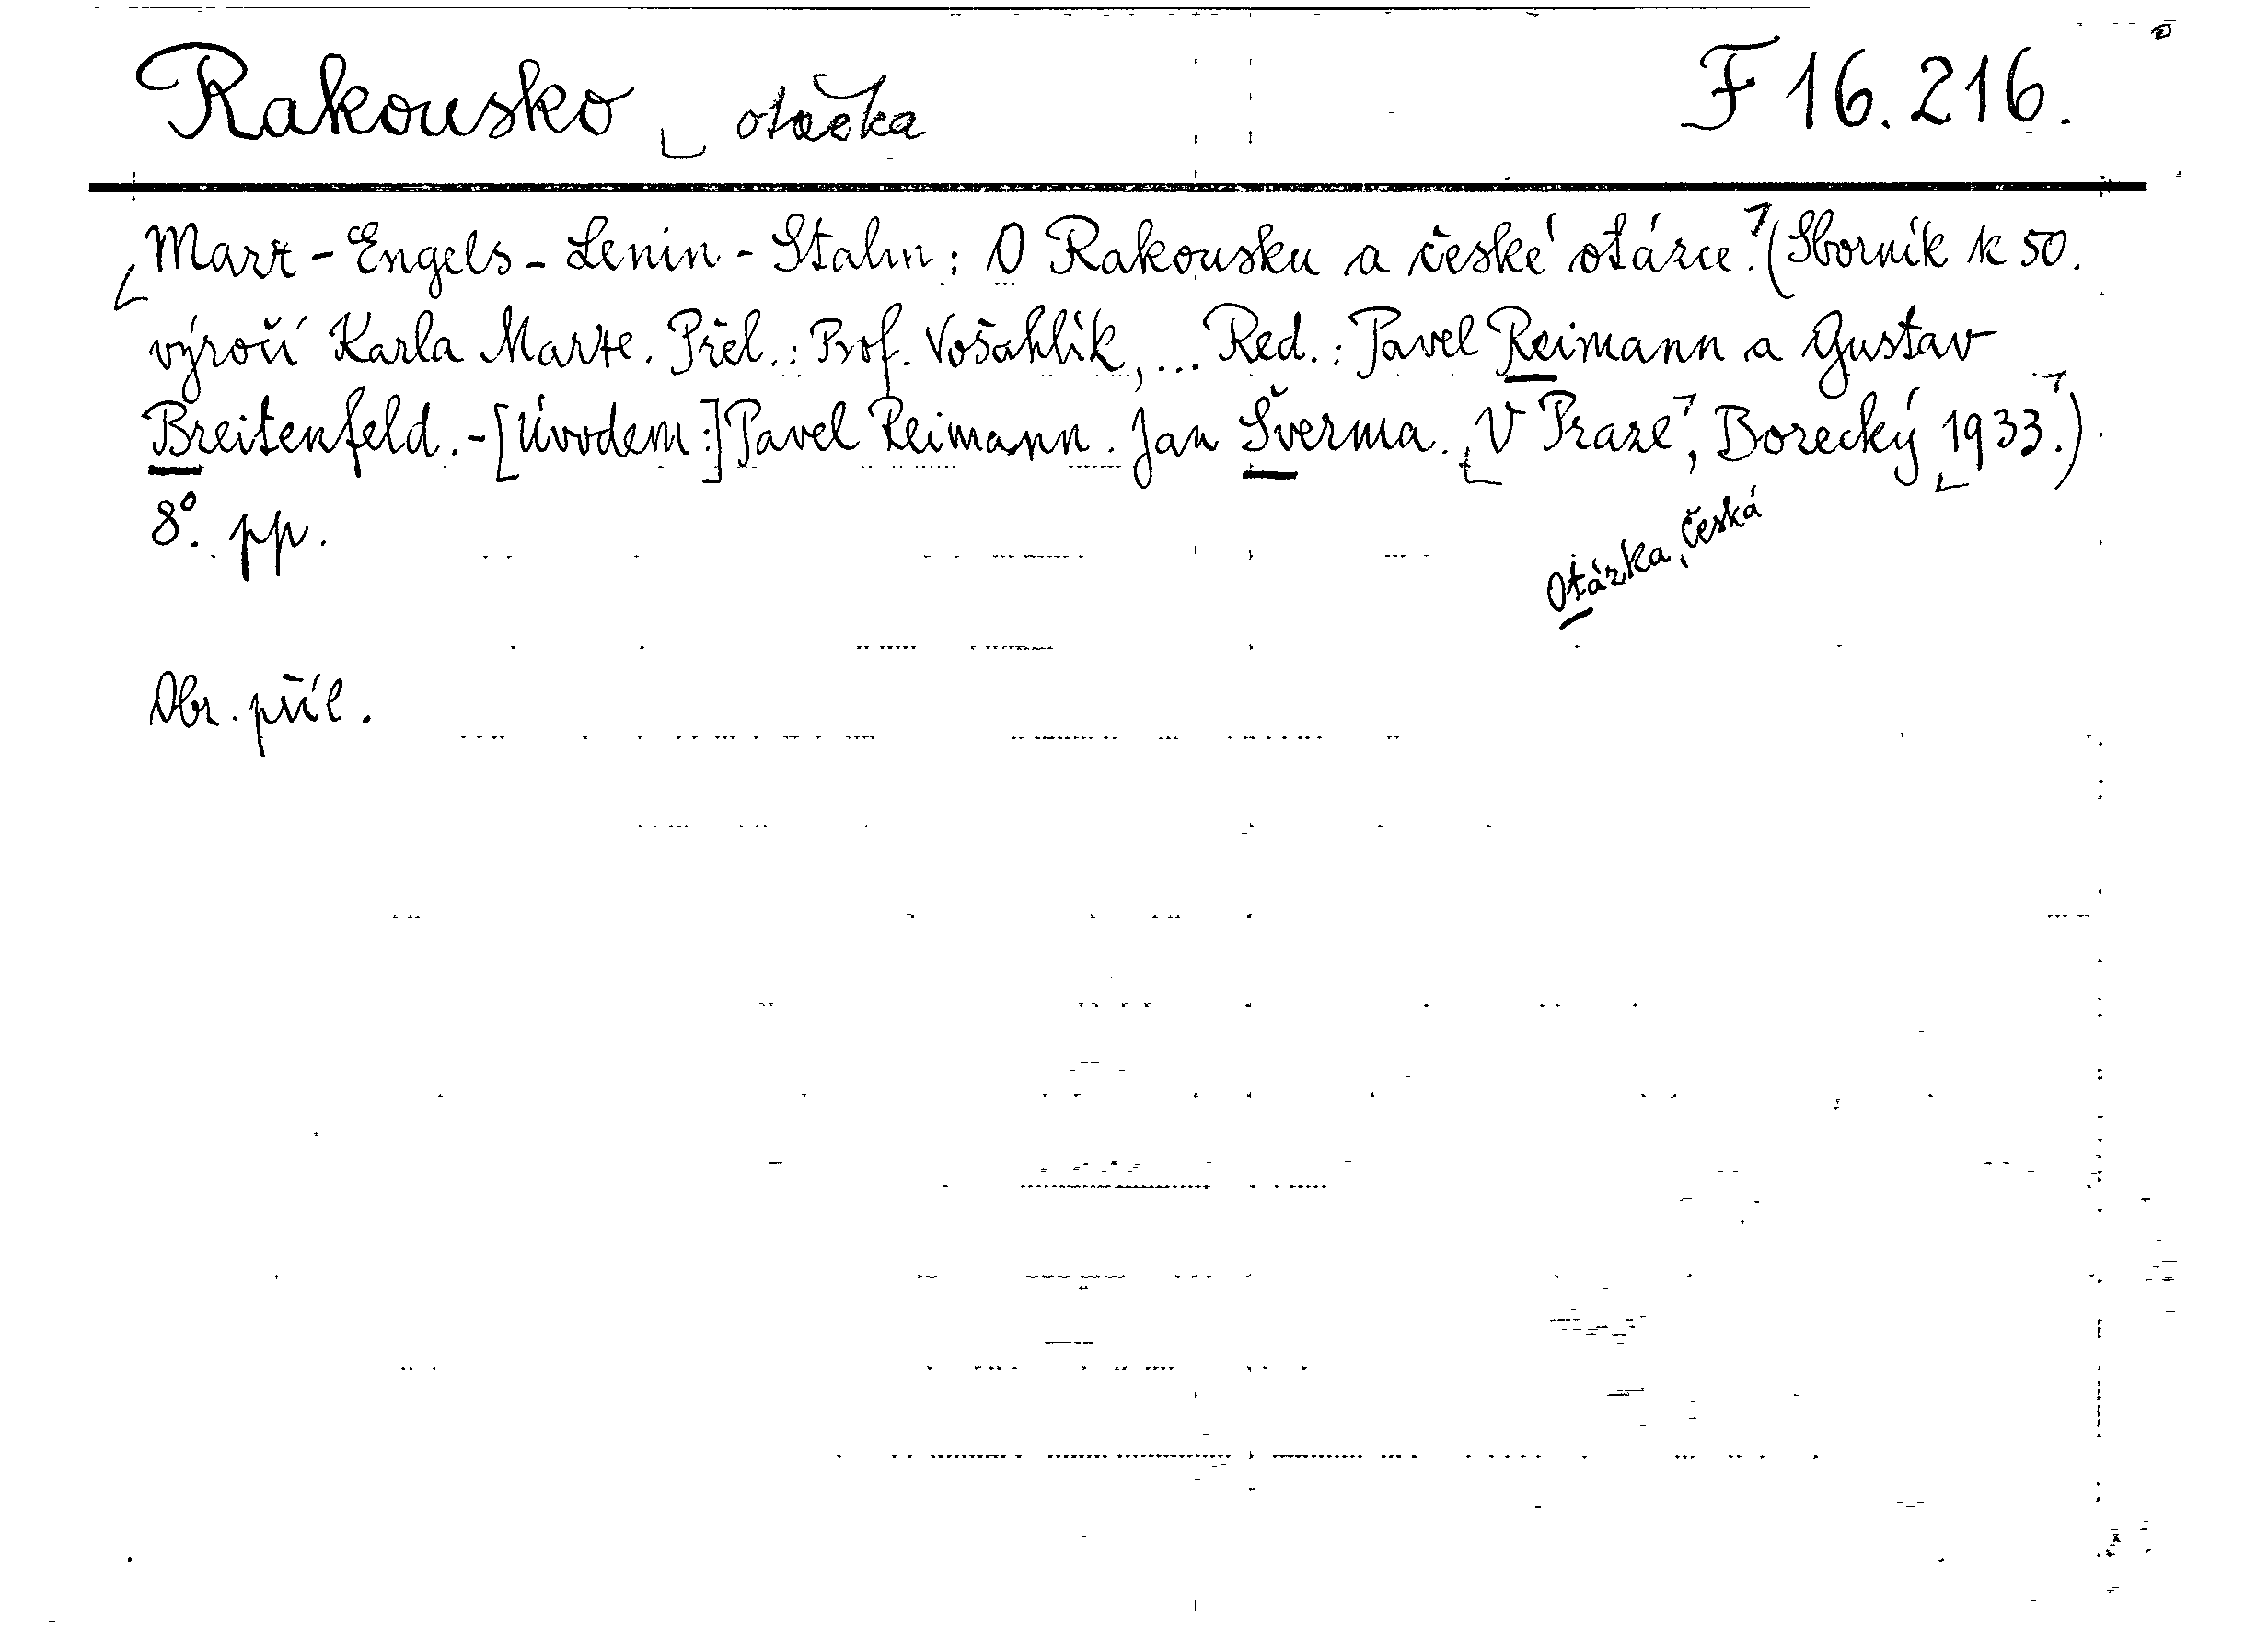 Rakousko otázka F 16.216.
Marx - Engels - Lenin - Stalin: O Rakousku a české otázce. (Sborník k 50.
výročí Karla Marxe. Přel.: Prof. Vošahlík, ... Red.: Pavel Reimann a Gustav
Breitenfeld. - [Úvodem:] Pavel Reimann. Jan Šverma. V Praze, Borecký 1933.)
8°. pp.
Otázka, česká
Obr. příl.